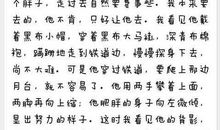 个胖子，走过去自然要费事些。我本来要
去的，他不肯，只好让他去。我看见他戴
着黑布小帽，穿着黑布大马褂，深青布棉
袍，蹒跚地走到铁道边，慢慢探身下去，
尚不大难。可是他穿过铁道，要爬上那边
月台，就不容易了。他用两手攀着上面，
两脚再向上缩；他肥胖的身子向左微倾，
显出努力的样子。这时我看见他的背影，